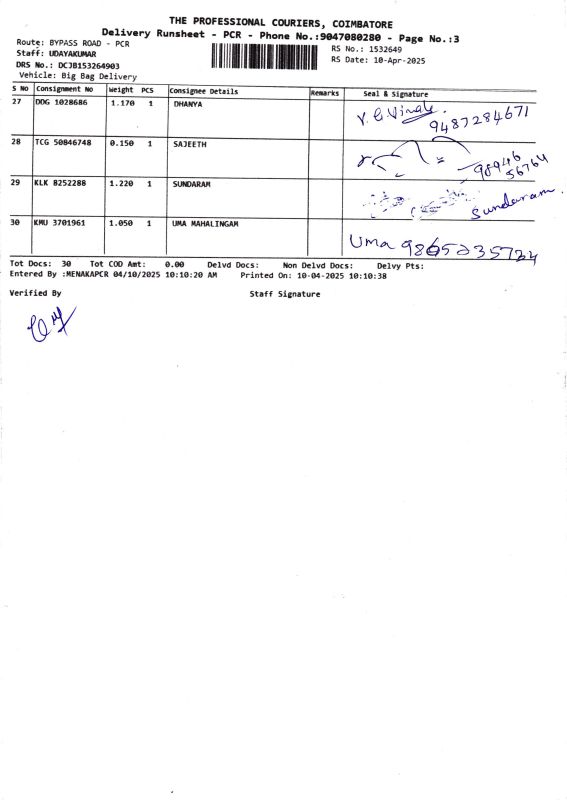 THE PROFESSIONAL COURIERS, COIMBATORE
Delivery Runsheet - PCR - Phone No.:9047080280 - Page No.:3
Route: BYPASS ROAD - PCR
RS No.: 1532649
Staff: UDAYAKUMAR
RS Date: 10-Apr-2025
DRS No.: DCJB153264903
Vehicle: Big Bag Delivery
S No Consignment No Weight PCS Consignee Details Remarks Seal & Signature
27 DDG 1028686 1.170 1 DHANYA
9487284671
28 TCG 50846748 0.150 1 SAJEETH
98946
56764
29 KLK 8252288 1.220 1 SUNDARAM Sundaram
30 KMU 3701961 1.050 1 UMA MAHALINGAM Uma
Tot Docs: 30 Tot COD Amt: 0.00 Delvd Docs: Non Delvd Docs: Delvy Pts:
Entered By :MENAKAPCR 04/10/2025 10:10:20 AM Printed On: 10-04-2025 10:10:38
Verified By Staff Signature